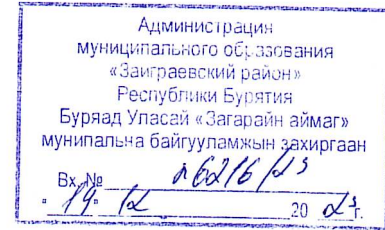 Администрация
муниципального образования
«Заиграевский район»
Республики Бурятия
Буряад Уласай «Загарайн аймаг»
мунипальча байгууламжын захиргаан
Вх. № 6216/23
"19" 12 20 23 г.